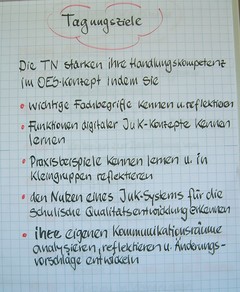 Tagungsziele
Die TN stärken ihre Handlungskompetenz
im OES-Konzept indem sie
• wichtige Fachbegriffe kennen u. reflektieren
• Funktionen digitaler IuK-Konzepte kennen
lernen
• Praxisbeispiele kennen lernen u. in
Kleingruppen reflektieren
• den Nutzen eines IuK-Systems für die
schulische Qualitätsentwicklung erkennen
• ihre eigenen Kommunikationsräume
analysieren, reflektieren u. Änderungs-
vorschläge entwickeln